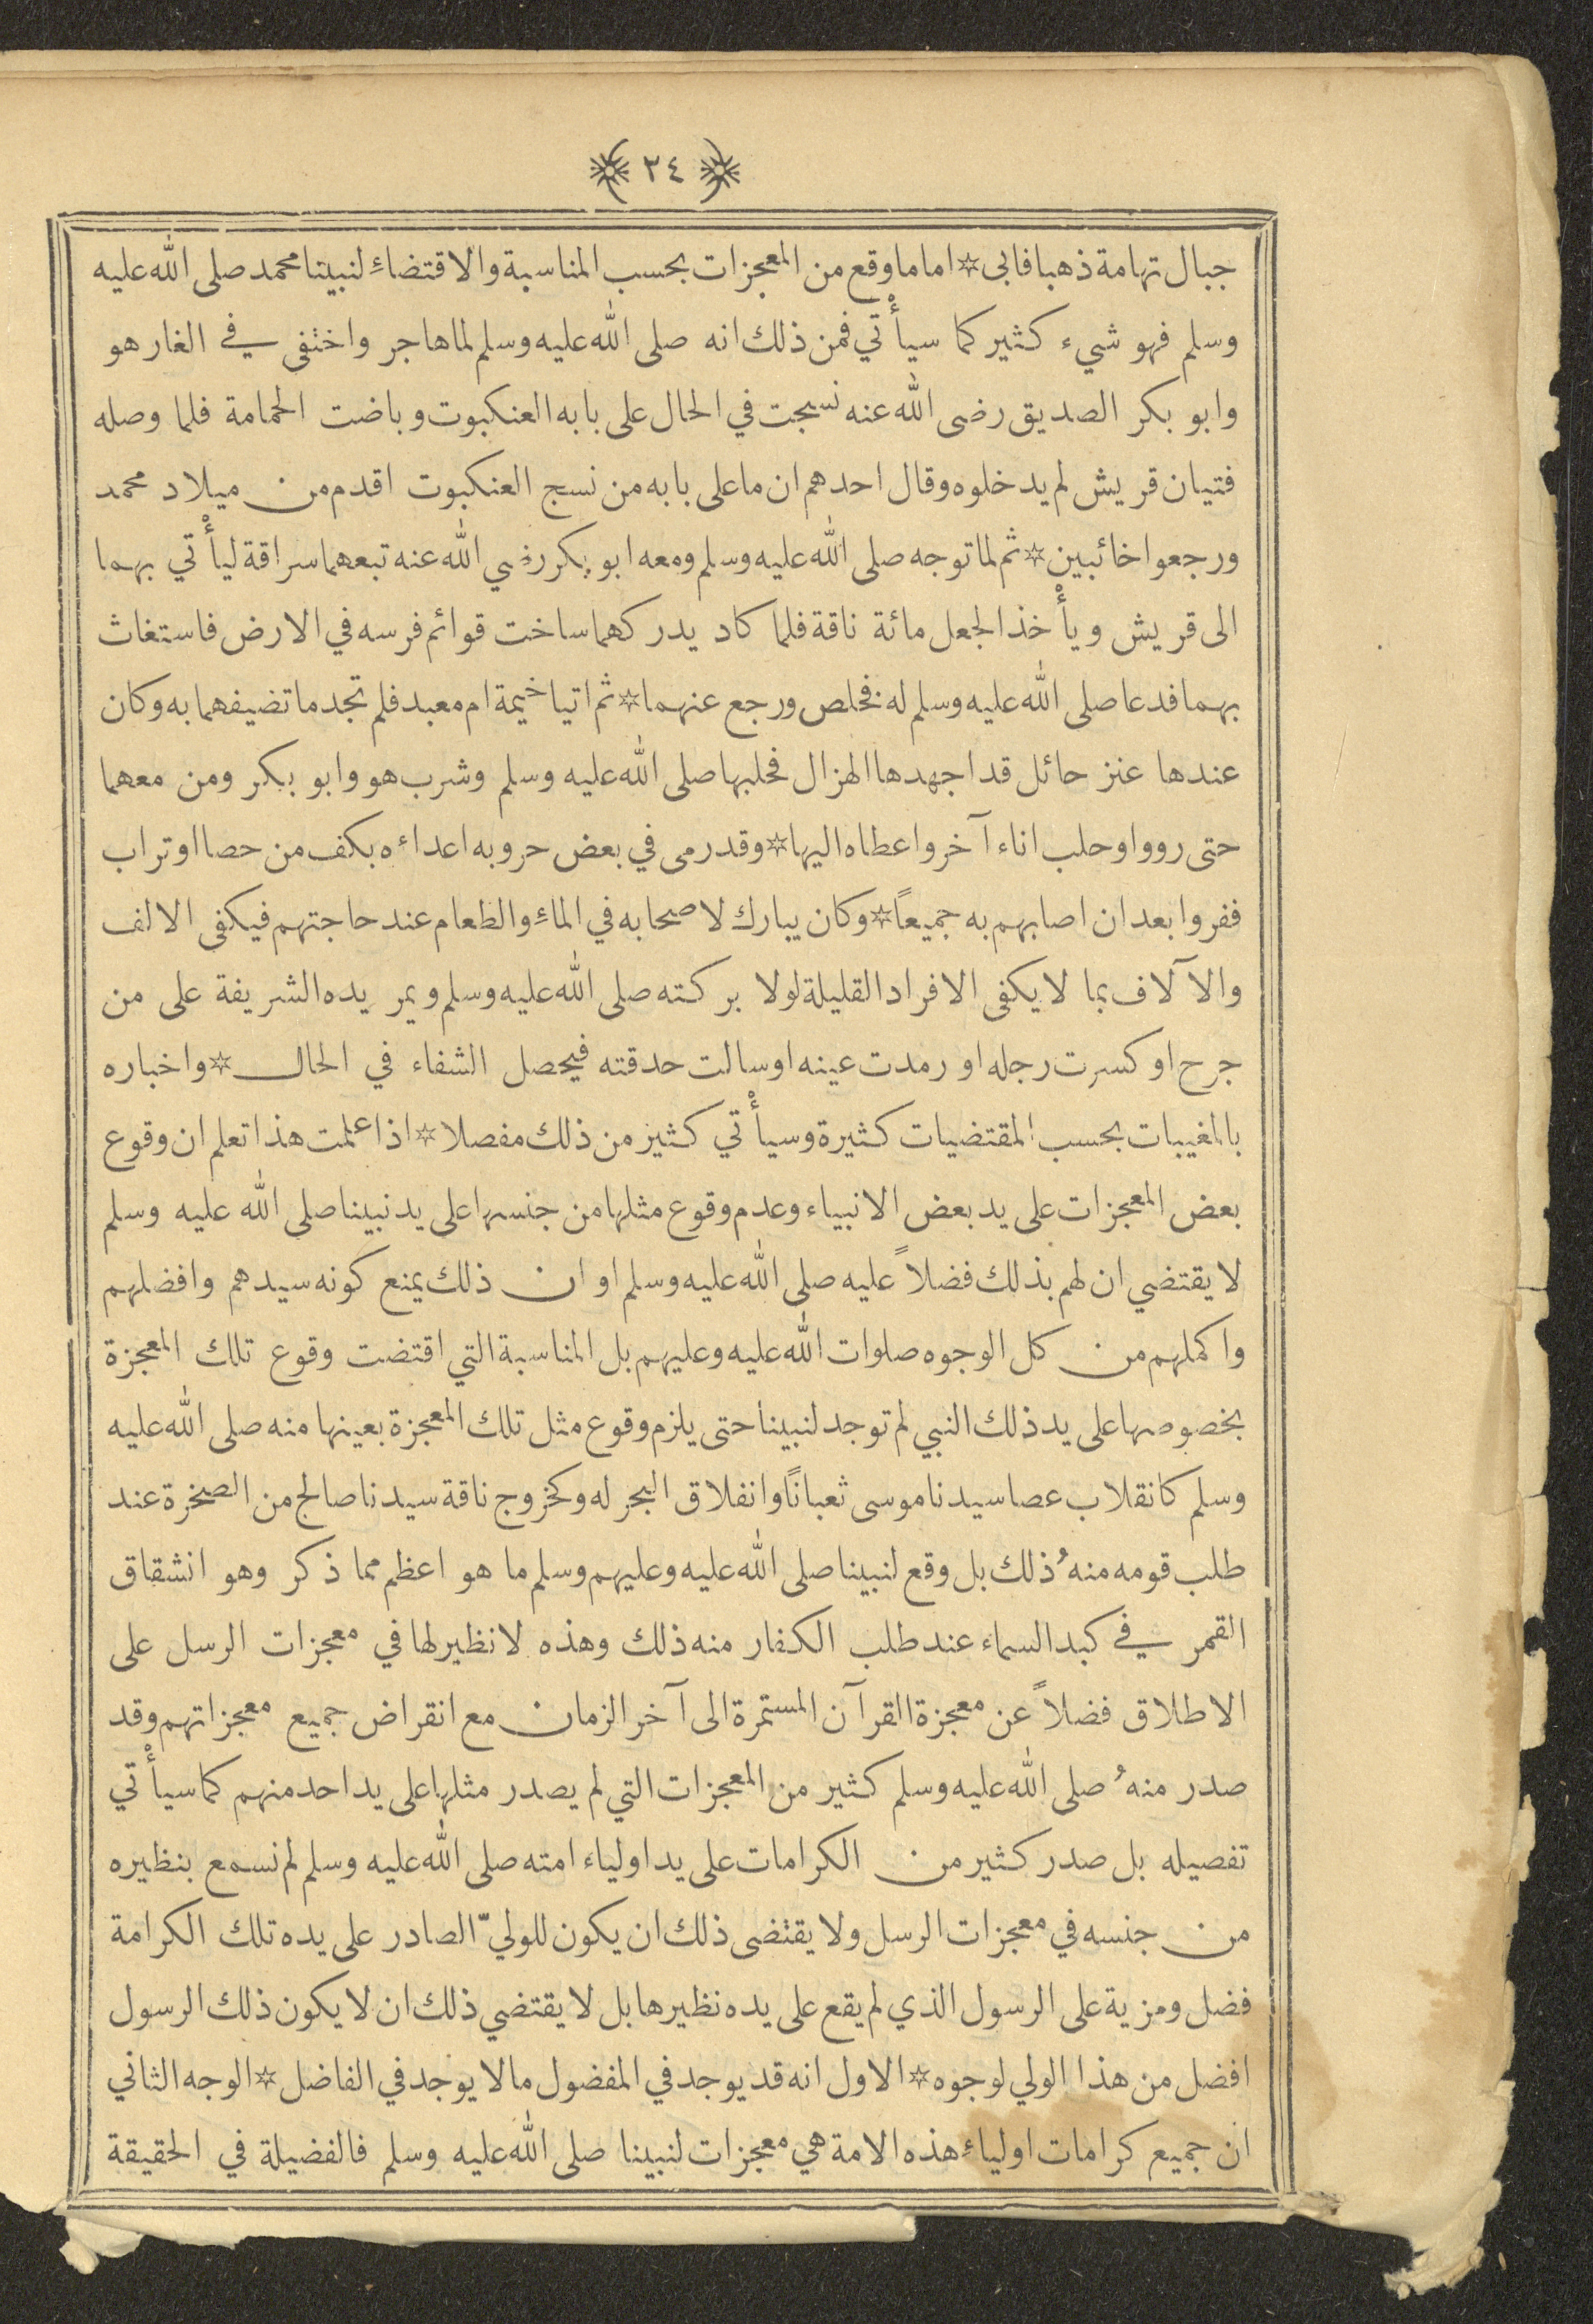 ﴿ ٢٤ ﴾
جبال تهامة ذهبا فابى * اما ما وقع من المعجزات بحسب المناسبة والاقتضاءِ لنبينا محمد صلى الله عليه
وسلم فهو شيء كثير كما سيأْتي فمن ذلك انه صلى الله عليه وسلم لما هاجر واختفى في الغار هو
وابو بكر الصديق رضى الله عنه نسجت في الحال على بابه العنكبوت وباضت الحمامة فلما وصله
فتيان قريش لم يدخلوه وقال احدهم ان ما على بابه من نسج العنكبوت اقدم من ميلاد محمد
ورجعوا خائبين * ثم لما توجه صلى الله عليه وسلم ومعه ابو بكر رضي الله عنه تبعهما سراقة ليأْتي بهما
الى قريش ويأْخذ الجعل مائة ناقة فلما كاد يدركهما ساخت قوائم فرسه في الارض فاستغاث
بهما فدعا صلى الله عليه وسلم له فخلص ورجع عنهما * ثم اتيا خيمة ام معبد فلم تجد ما تضيفهما به وكان
عندها عنز حائل قد اجهدها الهزال فحلبها صلى الله عليه وسلم وشرب هو وابو بكر ومن معهما
حتى رووا وحلب اناء آخر واعطاه اليها * وقد رمى في بعض حروبه اعداءه بكف من حصا او تراب
ففروا بعد ان اصابهم به جميعاً * وكان يبارك لاصحابه في الماءِ والطعام عند حاجتهم فيكفى الالف
والآلاف بما لا يكفى الافراد القليلة لولا بركته صلى الله عليه وسلم ويمر يده الشريفة على من
جرح او كسرت رجله او رمدت عينه او سالت حدقته فيحصل الشفاء في الحال * واخباره
بالمغيبات بحسب المقتضيات كثيرة وسيأْتي كثير من ذلك مفصلا * اذا علمت هذا تعلم ان وقوع
بعض المعجزات على يد بعض الانبياء وعدم وقوع مثلها من جنسها على يد نبينا صلى الله عليه وسلم
لا يقتضي ان لهم بذلك فضلاً عليه صلى الله عليه وسلم او ان ذلك يمنع كونه سيدهم وافضلهم
واكملهم من كل الوجوه صلوات الله عليه وعليهم بل المناسبة التي اقتضت وقوع تلك المعجزة
بخصوصها على يد ذلك النبي لم توجد لنبينا حتى يلزم وقوع مثل تلك المعجزة بعينها منه صلى الله عليه
وسلم كانقلاب عصا سيدنا موسى ثعباناً وانفلاق البحر له وكخروج ناقة سيدنا صالح من الصخرة عند
طلب قومه منهُ ذلك بل وقع لنبينا صلى الله عليه وعليهم وسلم ما هو اعظم مما ذكر وهو انشقاق
القمر في كبد السماء عند طلب الكفار منه ذلك وهذه لا نظير لها في معجزات الرسل على
الاطلاق فضلاً عن معجزة القرآن المستمرة الى آخر الزمان مع انقراض جميع معجزاتهم وقد
صدر منهُ صلى الله عليه وسلم كثير من المعجزات التي لم يصدر مثلها على يد احد منهم كما سيأْتي
تفصيله بل صدر كثير من الكرامات على يد اولياء امته صلى الله عليه وسلم لم نسمع بنظيره
من جنسه في معجزات الرسل ولا يقتضى ذلك ان يكون للوليّ الصادر على يده تلك الكرامة
فضل ومزية على الرسول الذي لم يقع على يده نظيرها بل لا يقتضي ذلك ان لا يكون ذلك الرسول
افضل من هذا الولي لوجوه * الاول انه قد يوجد في المفضول ما لا يوجد في الفاضل * الوجه الثاني
ان جميع كرامات اولياءِ هذه الامة هي معجزات لنبينا صلى الله عليه وسلم فالفضيلة في الحقيقة